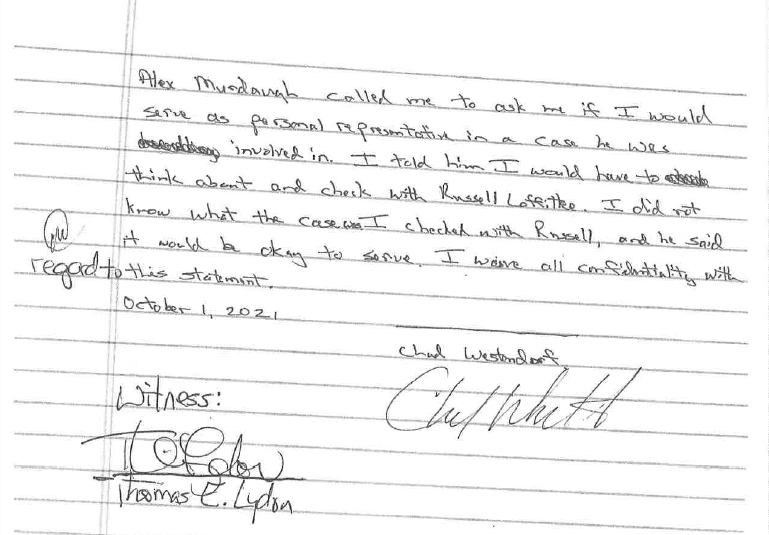 Alex Murdaugh called me to ask me if I would
serve as personal representative in a case he was
involved in. I told him I would have to
think about and check with Russell Laffitte. I did not
know what the case was I checked with Russell, and he said
it would be okay to serve. I waive all confidentiality with
regard to this statement.
October 1, 2021
Chad Westendorf
Witness:
Thomas E. Lydon